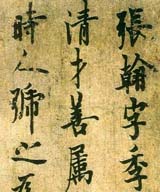 張翰字季
清才善属
時人號之